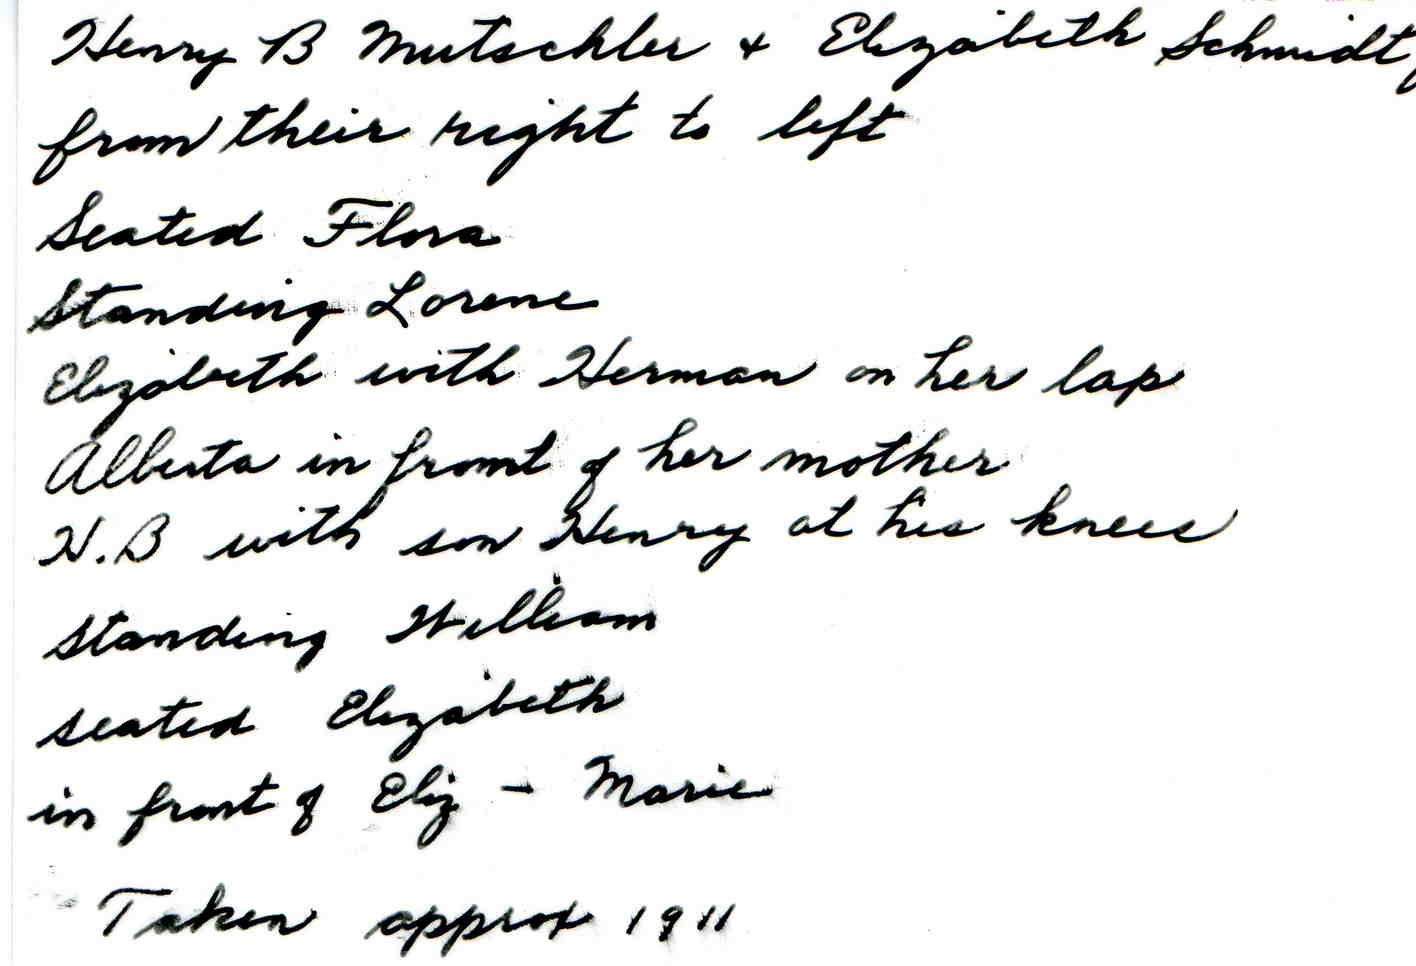 Henry B Mutschler + Elizabeth Schmidt
from their right to left
Seated Flora
Standing Lorene
Elizabeth with Herman on her lap
Alberta in front of her mother
H.B with son Henry at his knees
standing William
seated Elizabeth
in front of Eliz - Marie
Taken approx 1911